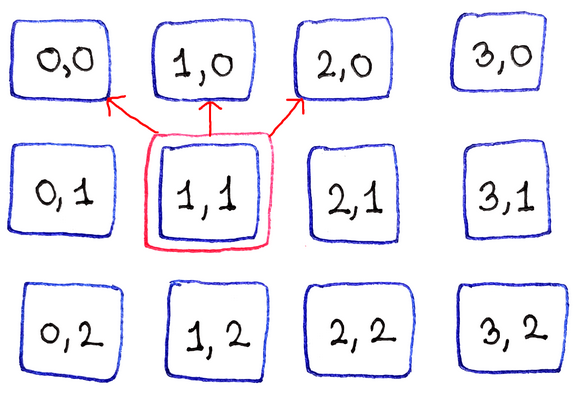 0,0 1,0 2,0 3,0
0,1 1,1 2,1 3,1
0,2 1,2 2,2 3,2